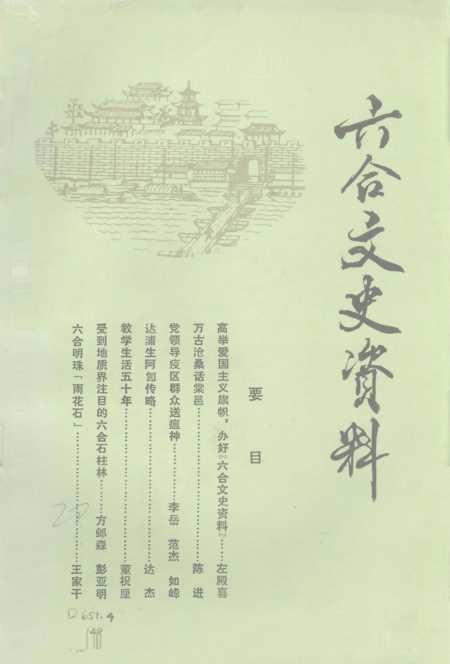 六合文史资料
要目
高举爱国主义旗帜，办好《六合文史资料》……左殿喜
万古沧桑话棠邑……陈进
党领导疫区群众送瘟神……李岳 范杰 如峰
达浦生阿訇传略……达杰
教学生活五十年……董祝厘
受到地质界注目的六合石柱林……方邺森 彭亚明
六合明珠「雨花石」……王家干
22
D651.4
148